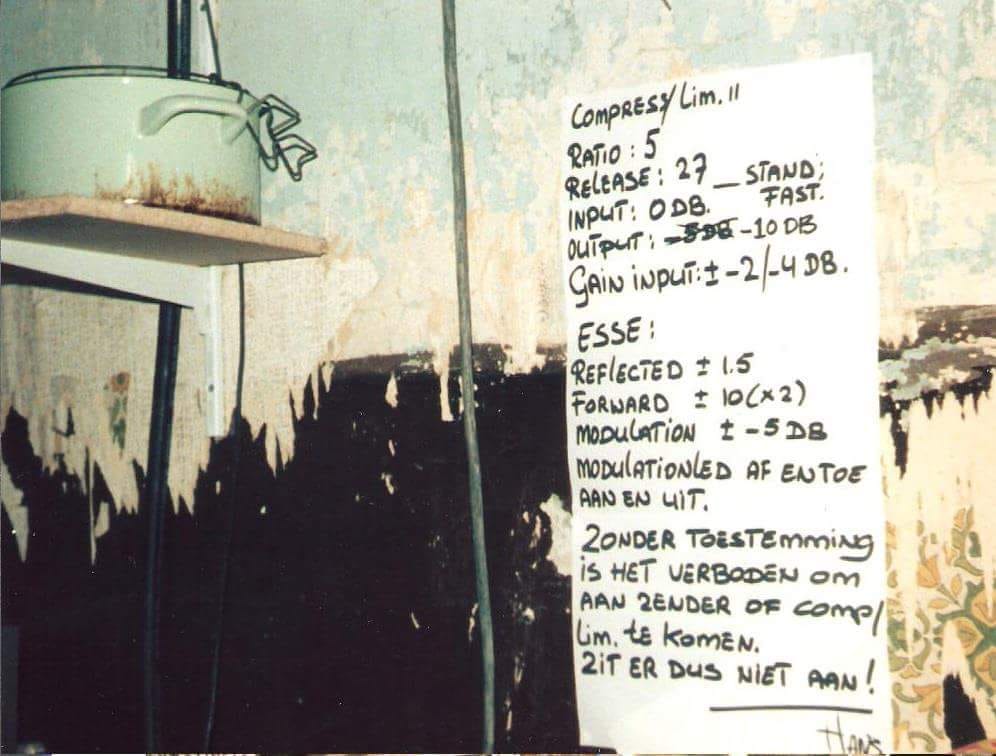 COMPRESS/Lim. II
RATIO: 5
RELEASE: 27 _ STAND;
FAST.
INPUT: 0 DB.
OUTPUT: -10 DB
GAIN INPUT: ± -2/-4 DB.
ESSE:
REFLECTED ± 1.5
FORWARD ± 10 (x2)
MODULATION ± -5 DB
MODULATIONLED AF EN TOE
AAN EN UIT.
ZONDER TOESTEMMING
IS HET VERBODEN OM
AAN ZENDER OF COMP/
Lim. te KOMEN.
ZIT ER DUS NIET AAN!
HANS